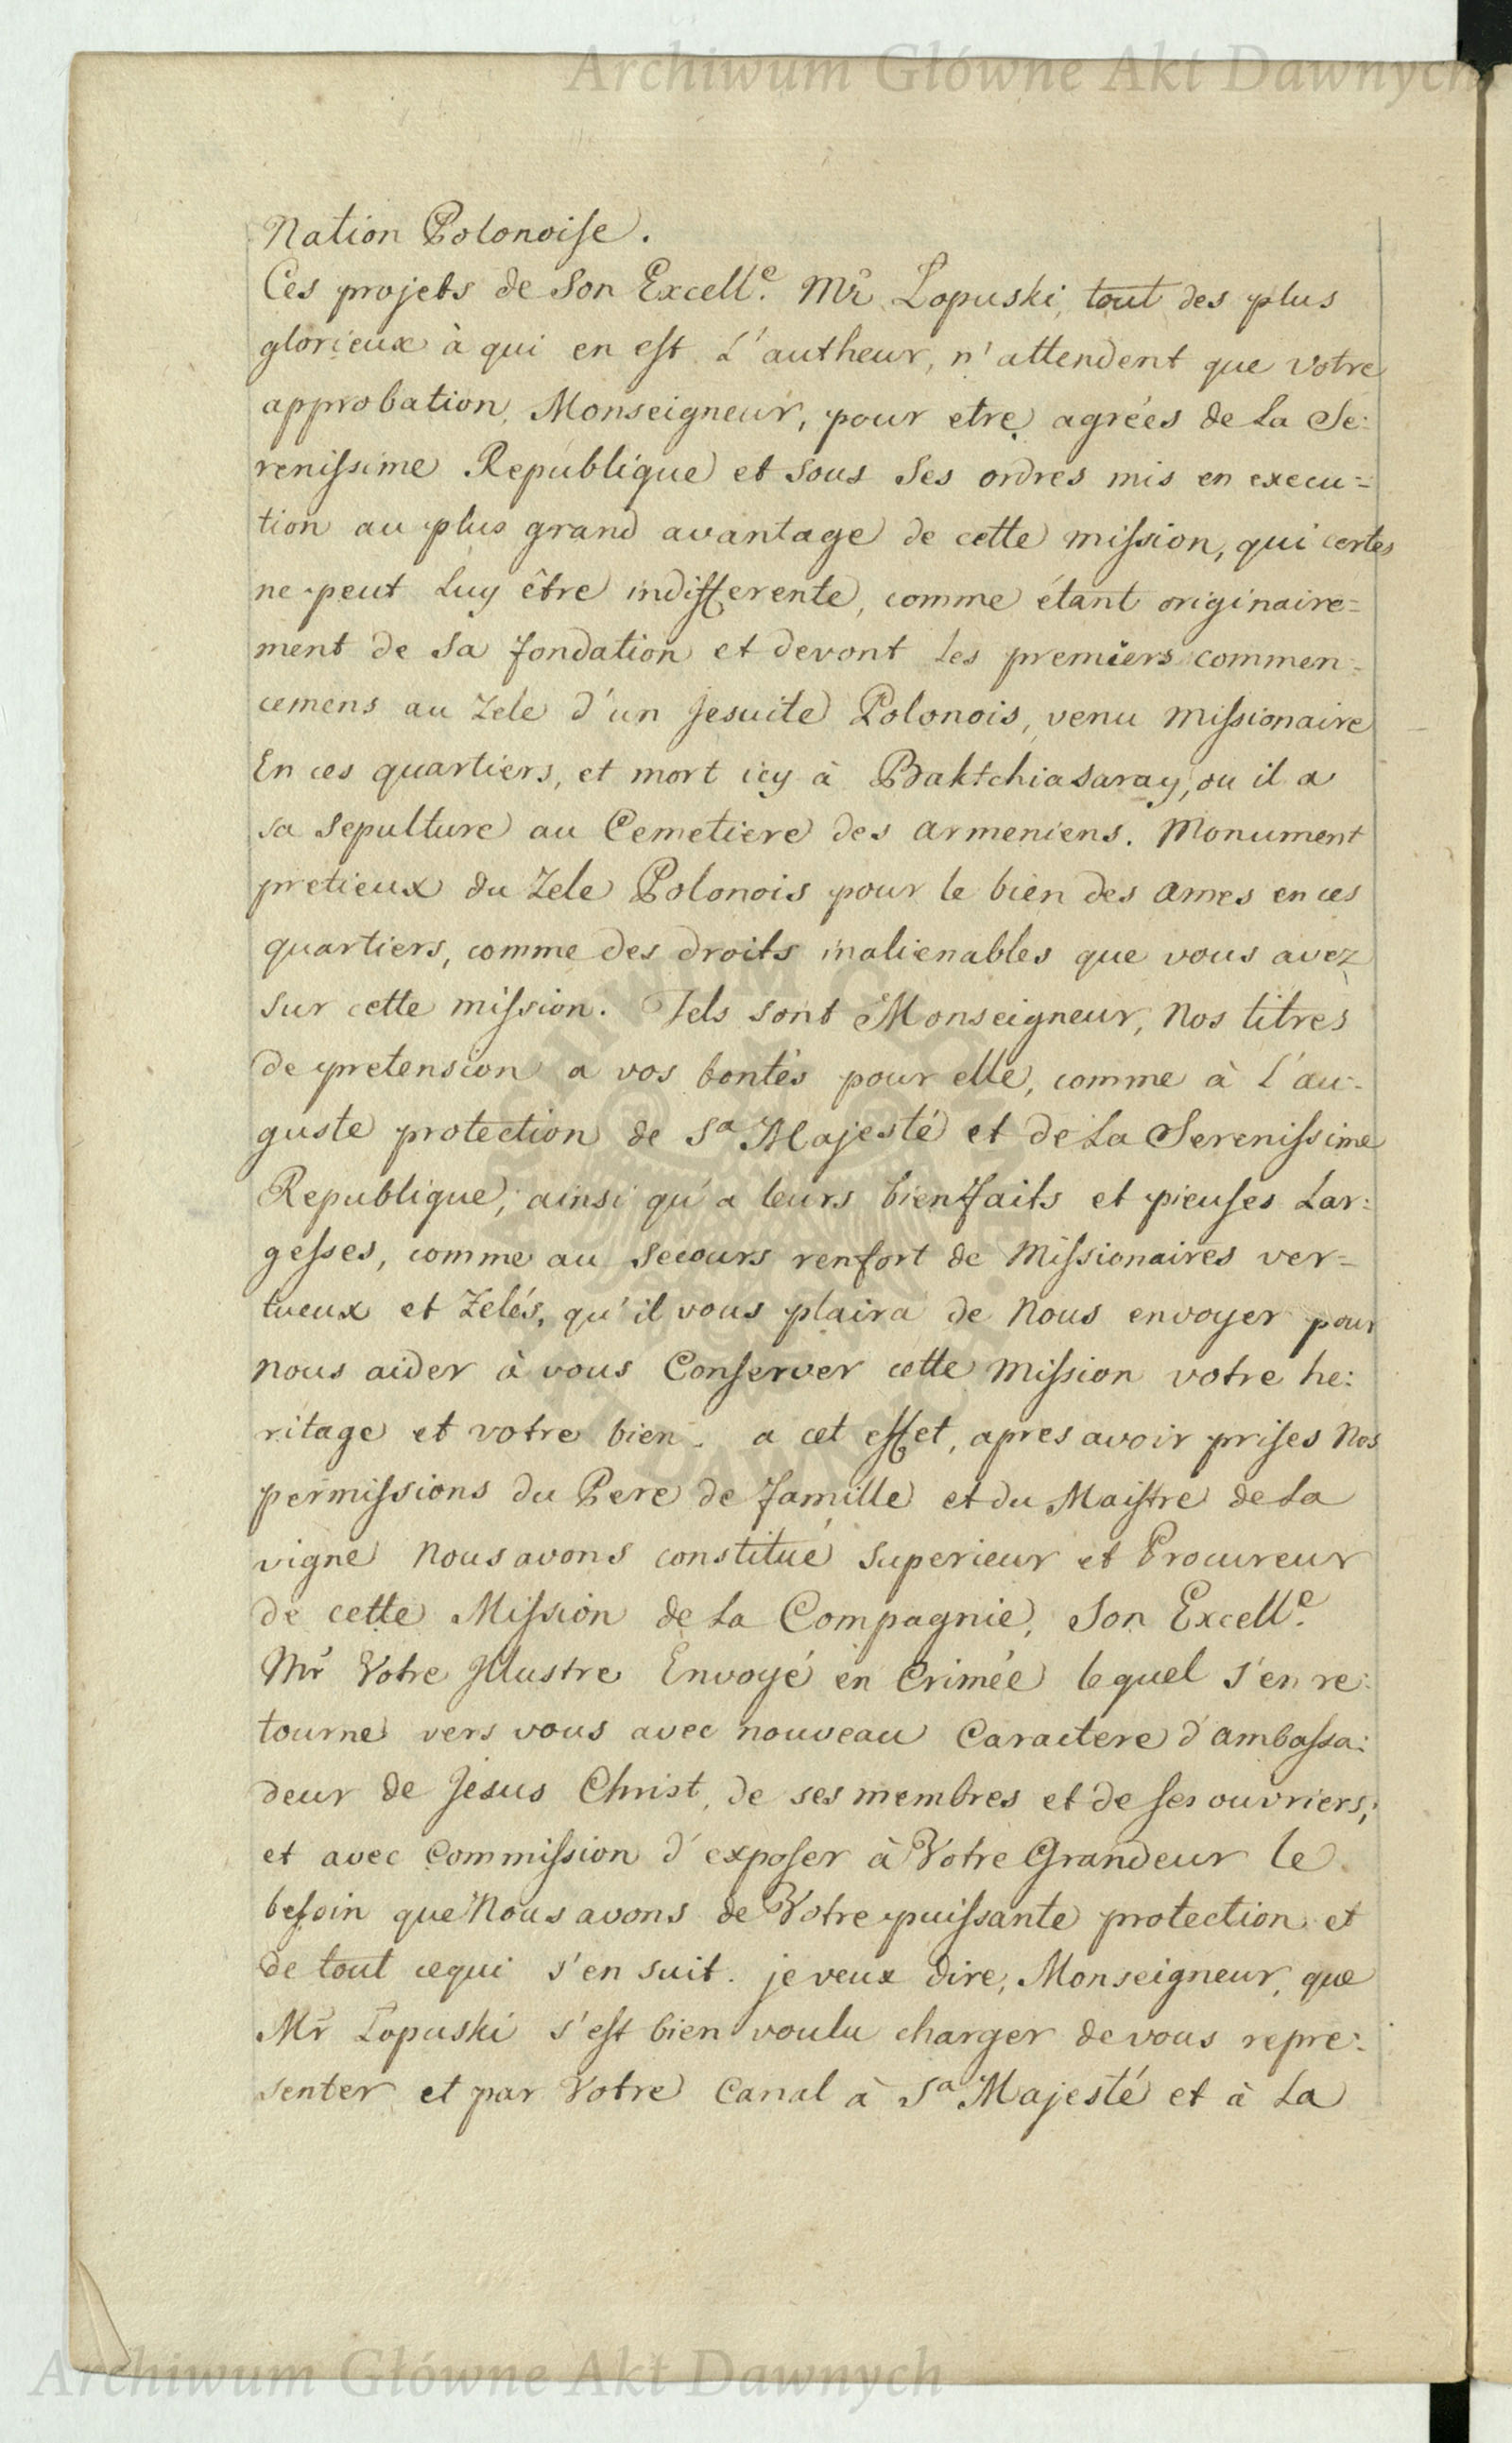 Archiwum Główne Akt Dawnych
Nation Polonoise.
Ces projets de Son Excell.e Mr Lopuski, tout des plus
glorieux à qui en est L'autheur, n'attendent que votre
approbation, Monseigneur, pour etre agréés de La Se:
renissime Republique et Sous Ses ordres mis en execu=
tion au plus grand avantage de cette mission, qui certes
ne peut Luy être indifferente, comme étant originaire=
ment de Sa fondation et devont les premiers commen=
cemens au Zele d'un Jesuite Polonois, venu Missionaire
En ces quartiers, et mort icy à Baktchiasaray, ou il a
sa Sepulture au Cemetiere des armeniens. Monument
pretieux du Zele Polonois pour le bien des ames en ces
quartiers, comme des droits inalienables que vous avez
sur cette mission. Tels sont Monseigneur, Nos titres
de pretension a vos bontés pour elle, comme à l'au-
guste protection de Sa Majesté et de La Serenissime
Republique, ainsi qu'a leurs bienfaits et pieuses Lar:
gesses, comme au Secours renfort de Missionaires ver=
tueux et Zelés, qu'il vous plaira de Nous envoyer pour
nous aider à vous Conserver cette Mission votre he:
ritage et votre bien. a cet effet, apres avoir prises Nos
permissions du Pere de famille et du Maistre de La
vigne Nous avons constitué Superieur et Procureur
de cette Mission de La Compagnie, Son Excell.e
Mr Votre Illustre Envoyé en Crimée lequel s'en re:
tourne vers vous avec nouveau Caractere d'ambassa:
deur de Jesus Christ, de ses membres et de ses ouvriers;
et avec Commission d'exposer à Votre Grandeur le
besoin que Nous avons de Votre puissante protection et
de tout cequi s'en suit. je veux dire, Monseigneur, que
Mr Lopuski s'est bien voulu charger de vous repre:
senter et par Votre Canal à Sa Majesté et à La
Archiwum Główne Akt Dawnych